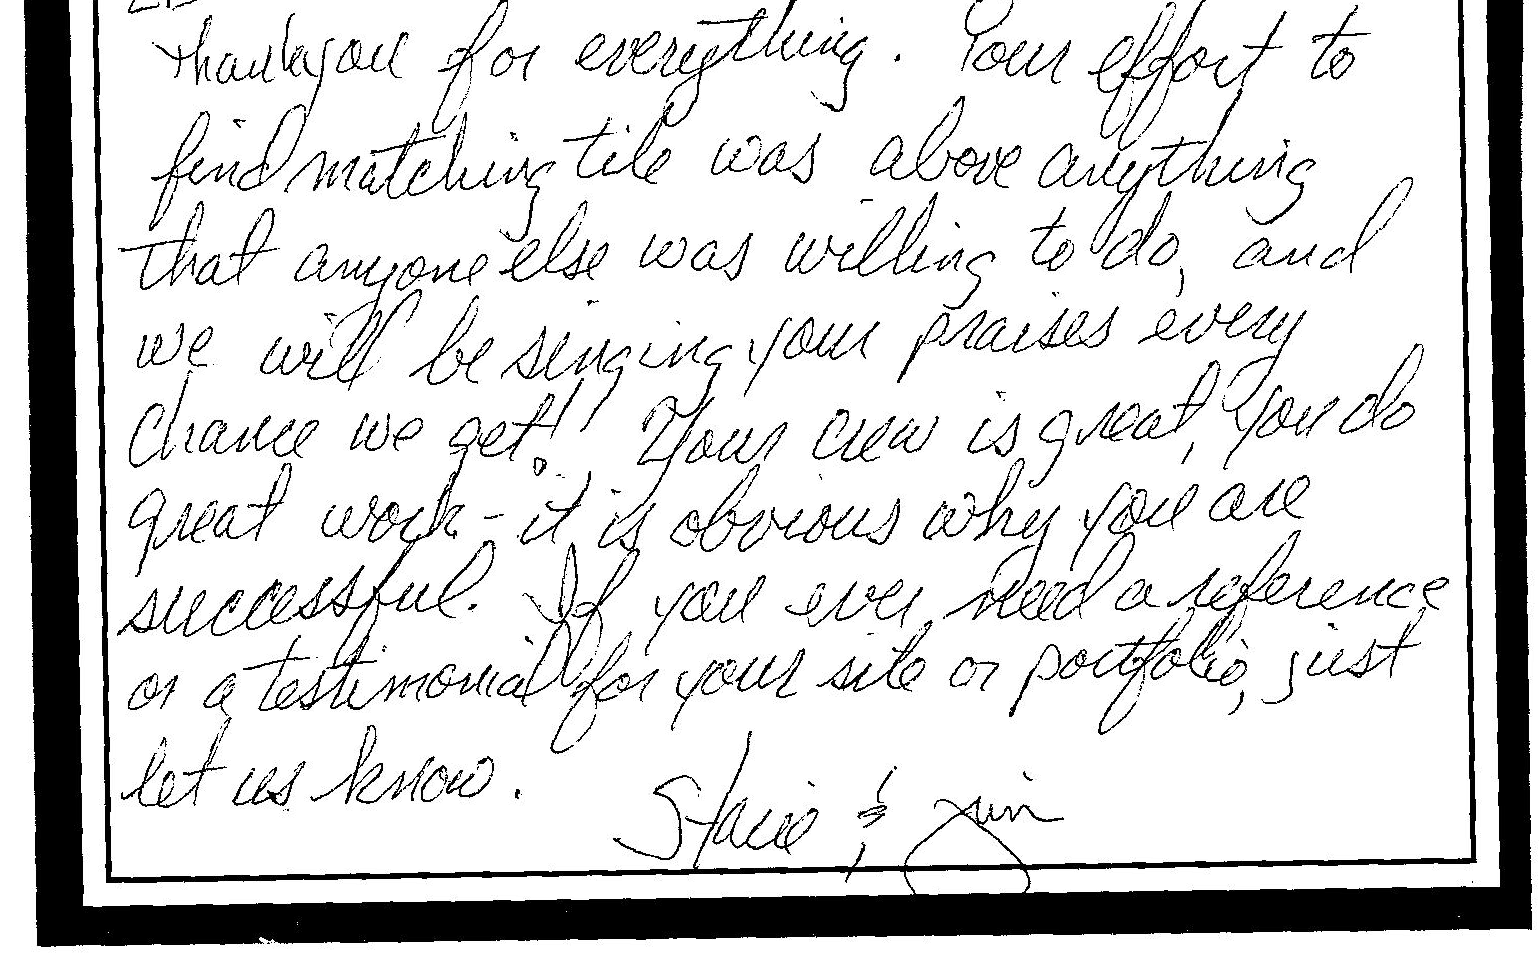 Thank you for everything. Your effort to
find matching tile was above anything
that anyone else was willing to do, and
we will be singing your praises every
chance we get!! Your crew is great, you do
great work - it is obvious why you are
successful. If you ever need a reference
or a testimonial for your site or portfolio, just
let us know.
Stacie & Jim